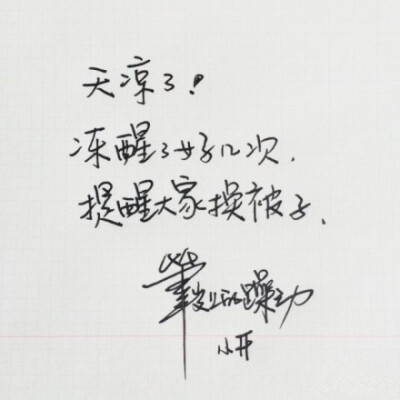 天凉了!
冻醒了好几次.
提醒大家换被子、
笔尖上的躁动
小开